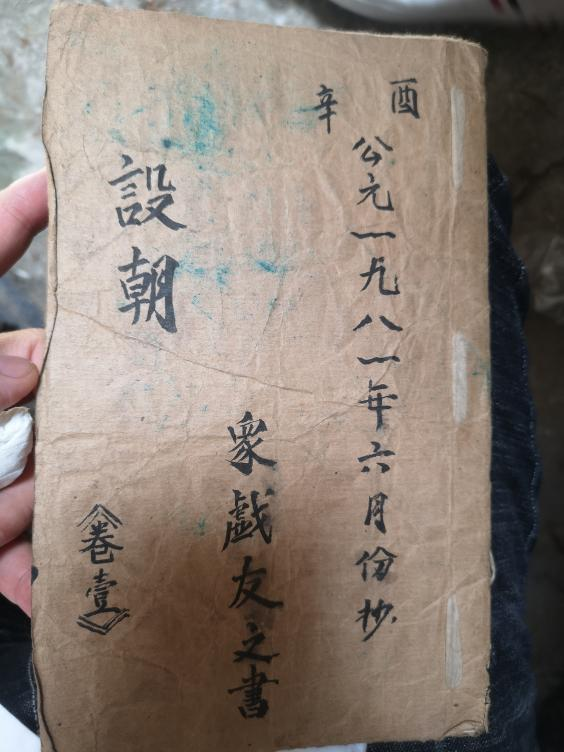 辛酉
公元一九八一年六月份抄
衆戲友之書
設朝
《卷壹》